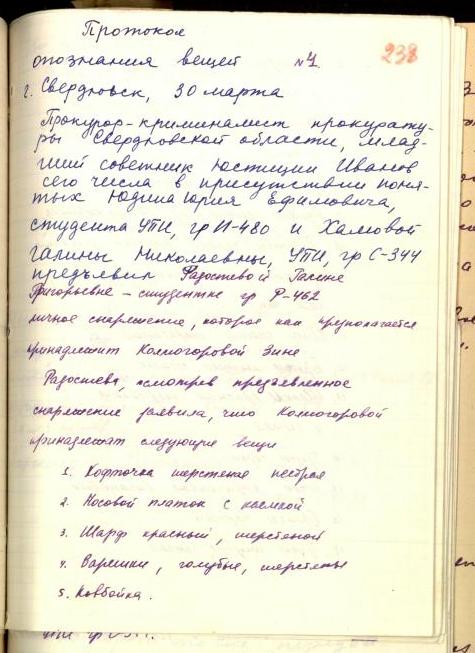 Протокол
238
опознания вещей №1
г. Свердловск, 30 марта
Прокурор-криминалист прокурату-
ры Свердловской области, млад-
ший советник юстиции Иванов
сего числа в присутствии поня-
тых Юдина Юрия Ефимовича,
студента УПИ, гр И-480 и
Галины Николаевны, УПИ, гр С-344
предъявил Радостевой Галине
Григорьевне – студентке гр Р-462
личное снаряжение, которое как предполагается
принадлежит Колмогоровой Зине
Радостева, осмотрев предъявленное
снаряжение заявила, что Колмогоровой
принадлежат следующие вещи
1. Кофточка шерстяная пестрая
2. Носовой платок с каемкой
3. Шарф красный, шерстяной
4. Варежки, голубые, шерстяные
5. Ковбойка.